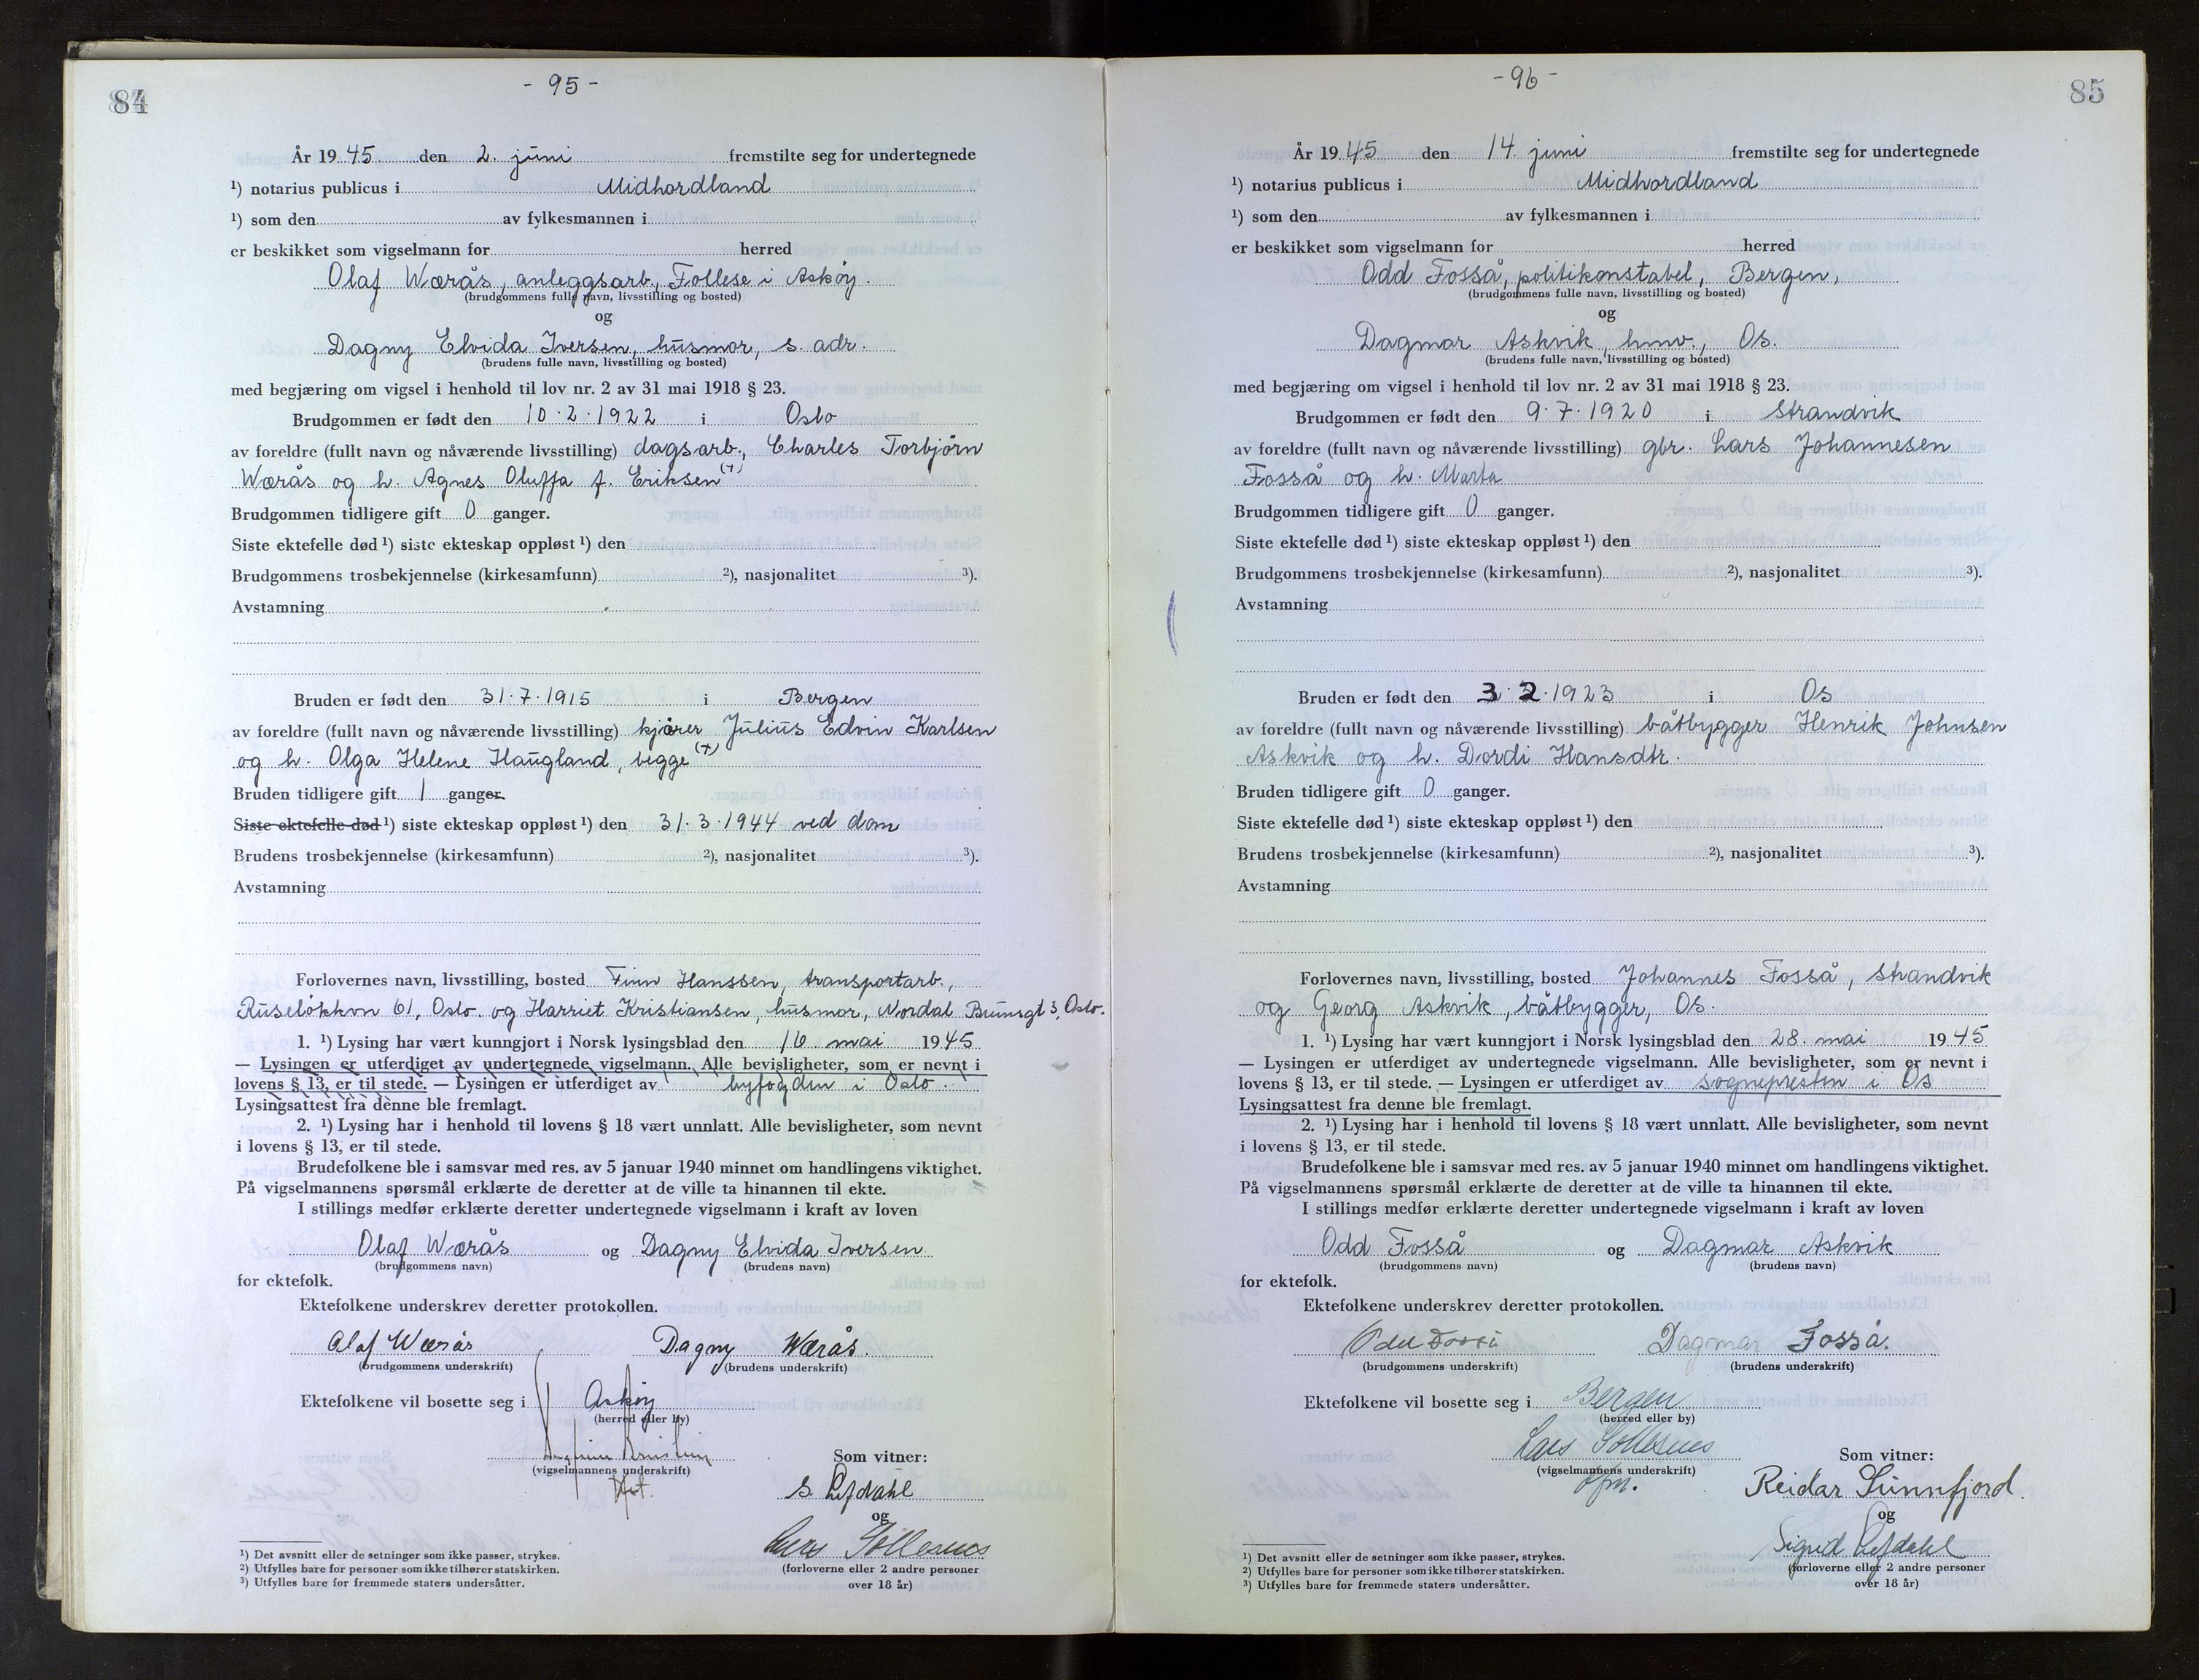 84
- 95 -
År 19 45 den 2. juni fremstilte seg for undertegnede
¹) notarius publicus i Midhordland
¹) som den av fylkesmannen i
er beskikket som vigselmann for herred
Olaf Wærås, anleggsarb., Follese i Askøy.
(brudgommens fulle navn, livsstilling og bosted)
og
Dagny Elvida Iversen, husmor, s. adr.
(brudens fulle navn, livsstilling og bosted)
med begjæring om vigsel i henhold til lov nr. 2 av 31 mai 1918 § 23.
Brudgommen er født den 10.2.1922 i Oslo
av foreldre (fullt navn og nåværende livsstilling) dagsarb., Charles Torbjørn
Wærås og h. Agnes Oluffa f. Eriksen (+)
Brudgommen tidligere gift 0 ganger.
Siste ektefelle død ¹) siste ekteskap oppløst ¹) den
Brudgommens trosbekjennelse (kirkesamfunn) ²), nasjonalitet ³).
Avstamning
Bruden er født den 31.7.1915 i Bergen
av foreldre (fullt navn og nåværende livsstilling) kjører Julius Edvin Karlsen
og h. Olga Helene Haugland, begge (+)
Bruden tidligere gift 1 ganger
Siste ektefelle død ¹) siste ekteskap oppløst ¹) den 31.3.1944 ved dom
Brudens trosbekjennelse (kirkesamfunn) ²), nasjonalitet ³).
Avstamning
Forlovernes navn, livsstilling, bosted Finn Hanssen, transportarb.,
Ruseløkkvn 61, Oslo. og Harriet Kristiansen, husmor, Nordal Brunsgt 3, Oslo.
1. ¹) Lysing har vært kunngjort i Norsk lysingsblad den 16. mai 1945
— Lysingen er utferdiget av undertegnede vigselmann. Alle bevisligheter, som er nevnt i
lovens § 13, er til stede. — Lysingen er utferdiget av byfogden i Oslo.
Lysingsattest fra denne ble fremlagt.
2. ¹) Lysing har i henhold til lovens § 18 vært unnlatt. Alle bevisligheter, som nevnt
i lovens § 13, er til stede.
Brudefolkene ble i samsvar med res. av 5 januar 1940 minnet om handlingens viktighet.
På vigselmannens spørsmål erklærte de deretter at de ville ta hinannen til ekte.
I stillings medfør erklærte deretter undertegnede vigselmann i kraft av loven
Olaf Wærås og Dagny Elvida Iversen
(brudgommens navn) (brudens navn)
for ektefolk.
Ektefolkene underskrev deretter protokollen.
Olaf Wærås Dagny Wærås.
(brudgommens underskrift) (brudens underskrift)
Ektefolkene vil bosette seg i Askøy
(herred eller by)
Som vitner:
(vigselmannens underskrift)
S. Lefdahl
og
Lars Söllesnes
(forloverne eller 2 andre personer
over 18 år)
¹) Det avsnitt eller de setninger som ikke passer, strykes.
²) Utfylles bare for personer som ikke tilhører statskirken.
³) Utfylles bare for fremmede staters undersåtter.
85
- 96 -
År 19 45 den 14. juni fremstilte seg for undertegnede
¹) notarius publicus i Midhordland
¹) som den av fylkesmannen i
er beskikket som vigselmann for herred
Odd Fosså, politikonstabel, Bergen,
(brudgommens fulle navn, livsstilling og bosted)
og
Dagmar Askvik, hmv., Os.
(brudens fulle navn, livsstilling og bosted)
med begjæring om vigsel i henhold til lov nr. 2 av 31 mai 1918 § 23.
Brudgommen er født den 9.7.1920 i Strandvik
av foreldre (fullt navn og nåværende livsstilling) gbr. Lars Johannesen
Fosså og h. Marta
Brudgommen tidligere gift 0 ganger.
Siste ektefelle død ¹) siste ekteskap oppløst ¹) den
Brudgommens trosbekjennelse (kirkesamfunn) ²), nasjonalitet ³).
Avstamning
Bruden er født den 3.2.1923 i Os
av foreldre (fullt navn og nåværende livsstilling) båtbygger Henrik Johnsen
Askvik og h. Dordi Hansdtr.
Bruden tidligere gift 0 ganger.
Siste ektefelle død ¹) siste ekteskap oppløst ¹) den
Brudens trosbekjennelse (kirkesamfunn) ²), nasjonalitet ³).
Avstamning
Forlovernes navn, livsstilling, bosted Johannes Fosså, Strandvik
og Georg Askvik, båtbygger, Os.
1. ¹) Lysing har vært kunngjort i Norsk lysingsblad den 28. mai 1945
— Lysingen er utferdiget av undertegnede vigselmann. Alle bevisligheter, som er nevnt i
lovens § 13, er til stede. — Lysingen er utferdiget av sognepresten i Os
Lysingsattest fra denne ble fremlagt.
2. ¹) Lysing har i henhold til lovens § 18 vært unnlatt. Alle bevisligheter, som nevnt
i lovens § 13, er til stede.
Brudefolkene ble i samsvar med res. av 5 januar 1940 minnet om handlingens viktighet.
På vigselmannens spørsmål erklærte de deretter at de ville ta hinannen til ekte.
I stillings medfør erklærte deretter undertegnede vigselmann i kraft av loven
Odd Fosså og Dagmar Askvik
(brudgommens navn) (brudens navn)
for ektefolk.
Ektefolkene underskrev deretter protokollen.
Odd Fosså Dagmar Fosså.
(brudgommens underskrift) (brudens underskrift)
Ektefolkene vil bosette seg i Bergen
(herred eller by)
Lars Söllesnes Som vitner:
(vigselmannens underskrift)
Reidar Sunnfjord.
og
Sigrid Lefdahl
(forloverne eller 2 andre personer
over 18 år)
¹) Det avsnitt eller de setninger som ikke passer, strykes.
²) Utfylles bare for personer som ikke tilhører statskirken.
³) Utfylles bare for fremmede staters undersåtter.